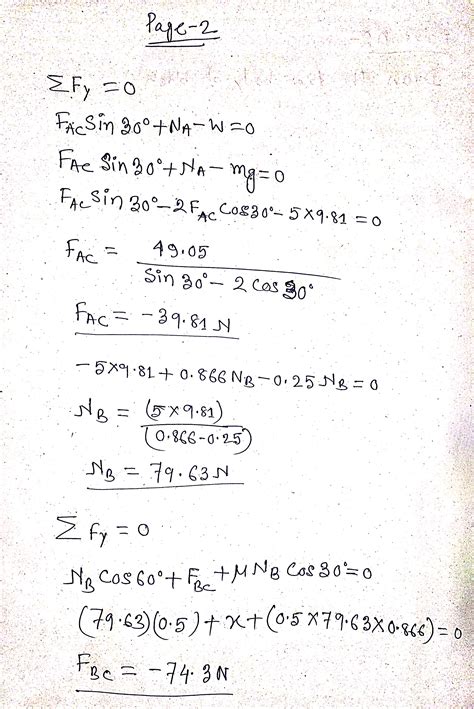 Page-2
ΣFy = 0
FAC Sin 30° + NA - W = 0
FAC Sin 30° + NA - mg = 0
FAC Sin 30° - 2 FAC Cos30° - 5×9.81 = 0
FAC = 49.05 / Sin 30° - 2 Cos 30°
FAC = -39.81 N
-5×9.81 + 0.866 NB - 0.25 NB = 0
NB = (5×9.81) / (0.866-0.25)
NB = 79.63 N
Σ Fy = 0
NB Cos 60° + FBC + μ NB Cos 30° = 0
(79.63)(0.5) + x + (0.5 × 79.63 × 0.866) = 0
FBC = -74.3 N